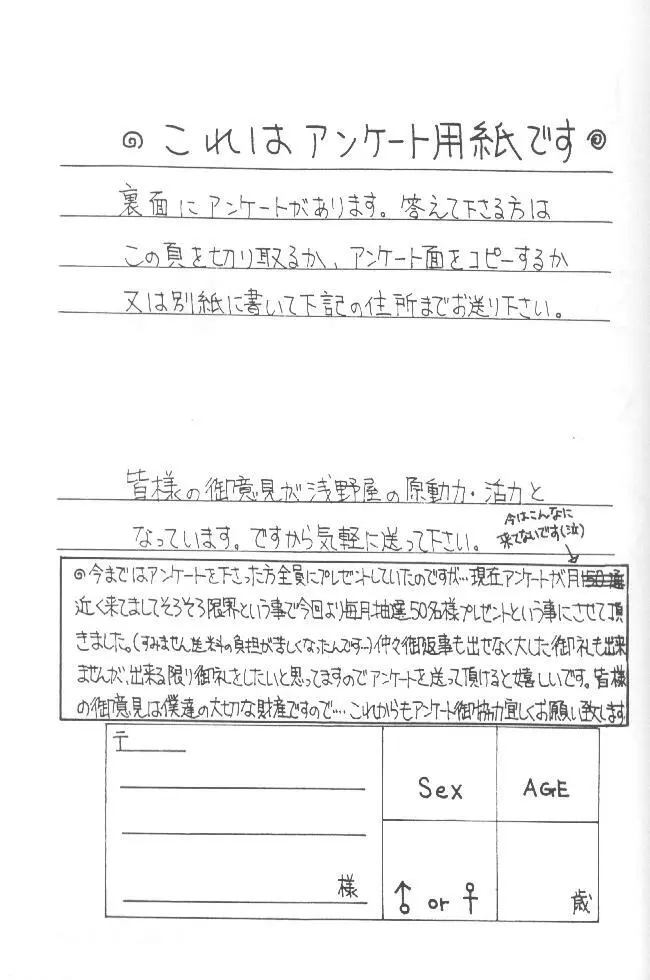 これはアンケート用紙です
裏面にアンケートがあります。答えて下さる方は
この頁を切り取るか、アンケート面をコピーするか
又は別紙に書いて下記の住所までお送り下さい。
皆様の御意見が浅野屋の原動力・活力と
今はこんなに
なっています。ですから気軽に送って下さい。
来てないです(泣)
◎今まではアンケートを下さった方全員にプレゼントしていたのですが…現在アンケートが月150通
近く来てましてそろそろ限界という事で今回より毎月抽選50名様プレゼントという事にさせて頂
きました。(すみません送料の負担が苦しくなったんです…)仲々御返事も出せなく大した御礼も出来
ませんが、出来る限り御礼をしたいと思ってますのでアンケートを送って頂けると嬉しいです。皆様
の御意見は僕達の大切な財産ですので…これからもアンケート御協力宜しくお願い致します
〒
Sex
AGE
様
♂ or ♀
歳